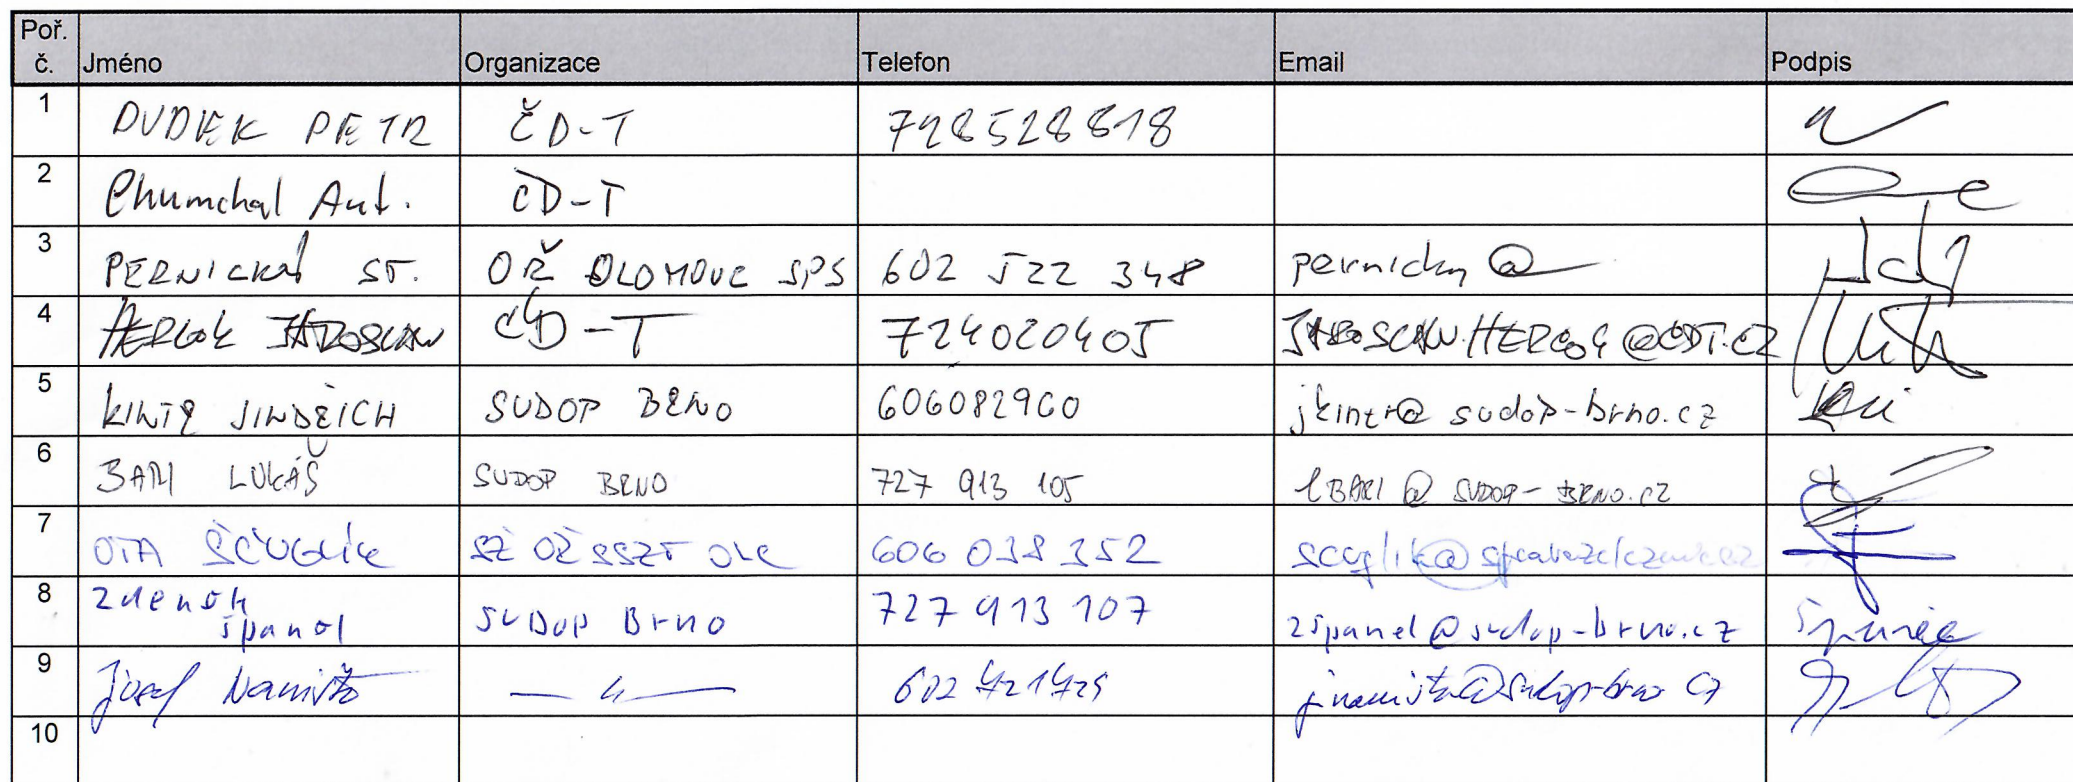 Poř. č. Jméno Organizace Telefon Email Podpis
1 DUDEK PETR ČD-T 728528818
2 Chumchal Ant. ČD-T
3 PERNICKÁ ST. OŘ OLOMOUC SPS 602 522 348 pernicky@
4 HERCOK JAROSLAV ČD-T 724020405
5 KINTR JINDŘICH SUDOP BRNO 606082960 jkintr@sudop-brno.cz
6 BARI LUKÁŠ SUDOP BRNO 727 913 105 LBARI@SUDOP-BRNO.CZ
7 OTA ŠČUGLÍK SŽ OŘ SSZT OLC 606 038 352 scuglik@spravazeleznic.cz
8 zdenek španěl SUDOP Brno 727 913 107 zspanel@sudop-brno.cz
9 Josef 602 721 429
10